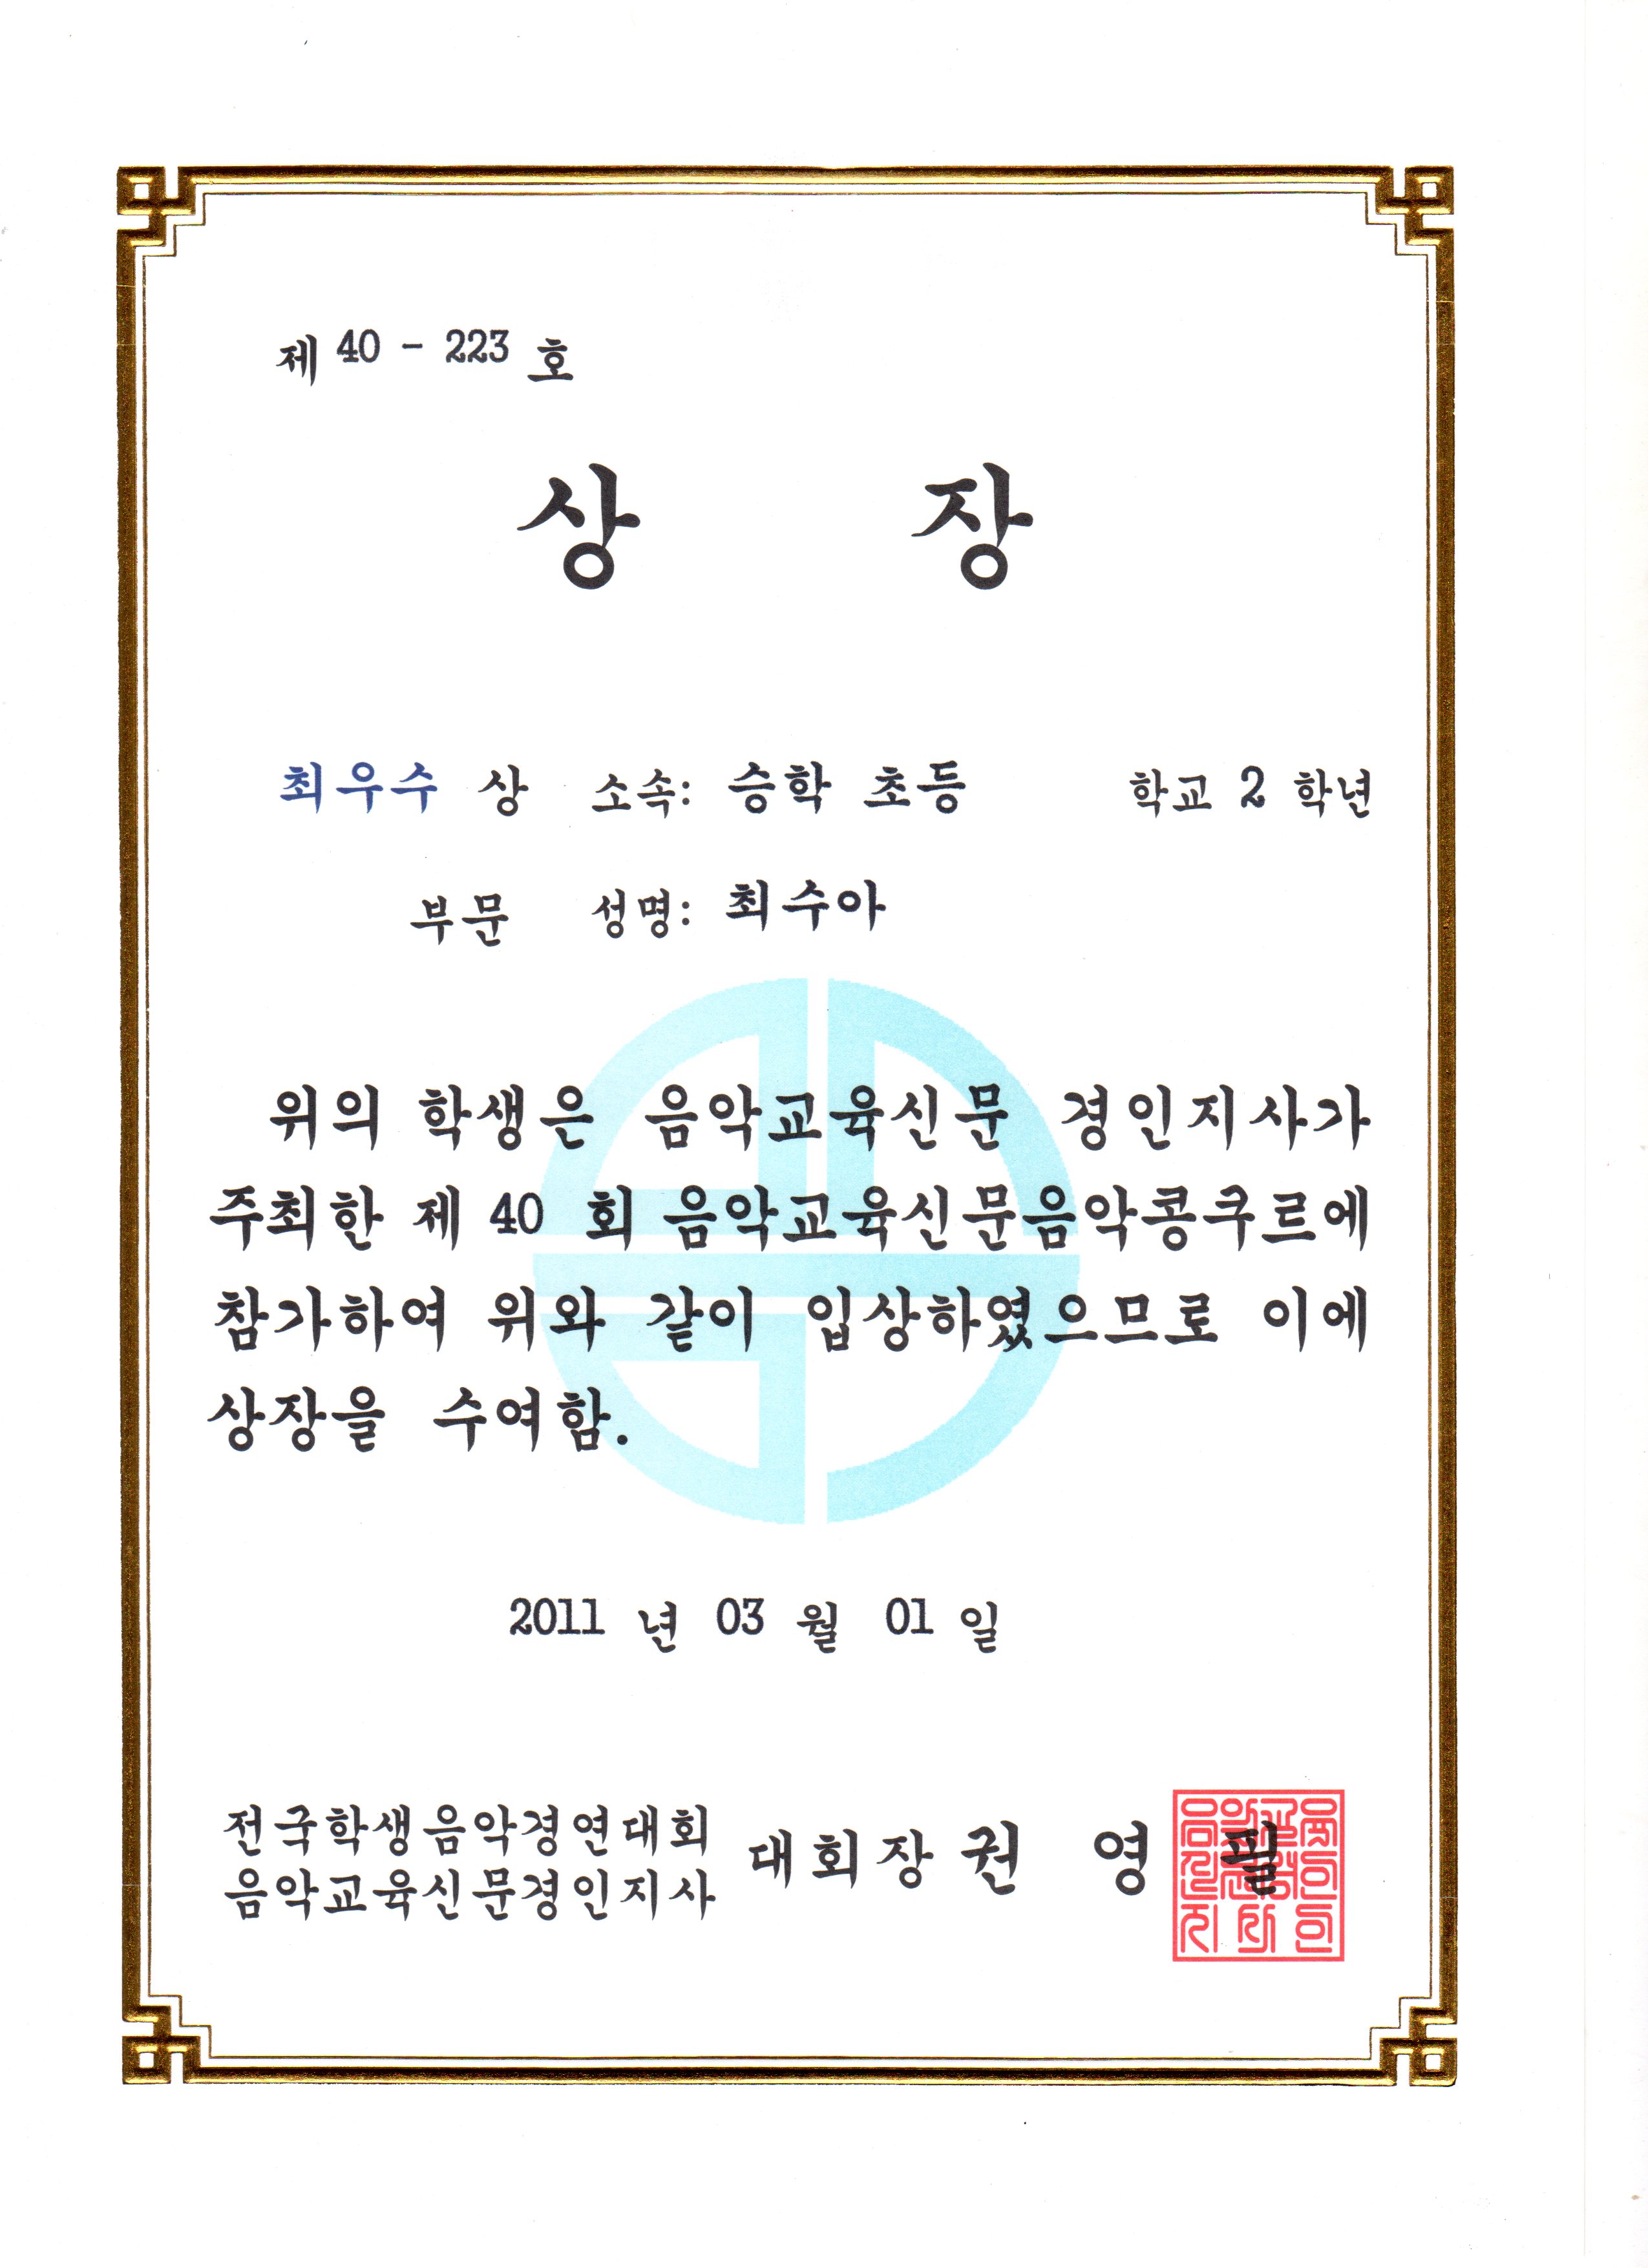 제 40 - 223 호
상 장
최우수 상 소속: 승학 초등 학교 2 학년
부문 성명: 최수아
위의 학생은 음악교육신문 경인지사가
주최한 제 40 회 음악교육신문음악콩쿠르에
참가하여 위와 같이 입상하였으므로 이에
상장을 수여함.
2011 년 03 월 01 일
전국학생음악경연대회
음악교육신문경인지사
대회장 권 영 필